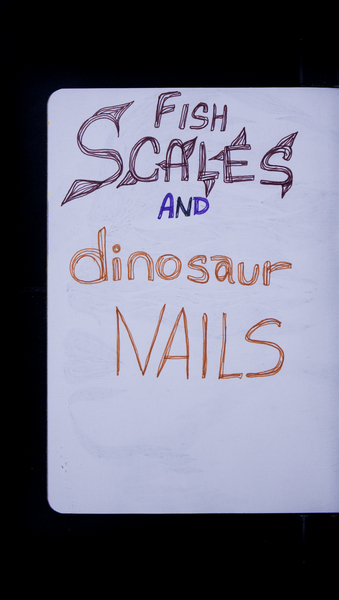 FISH
SCALES
AND
dinosaur
NAILS